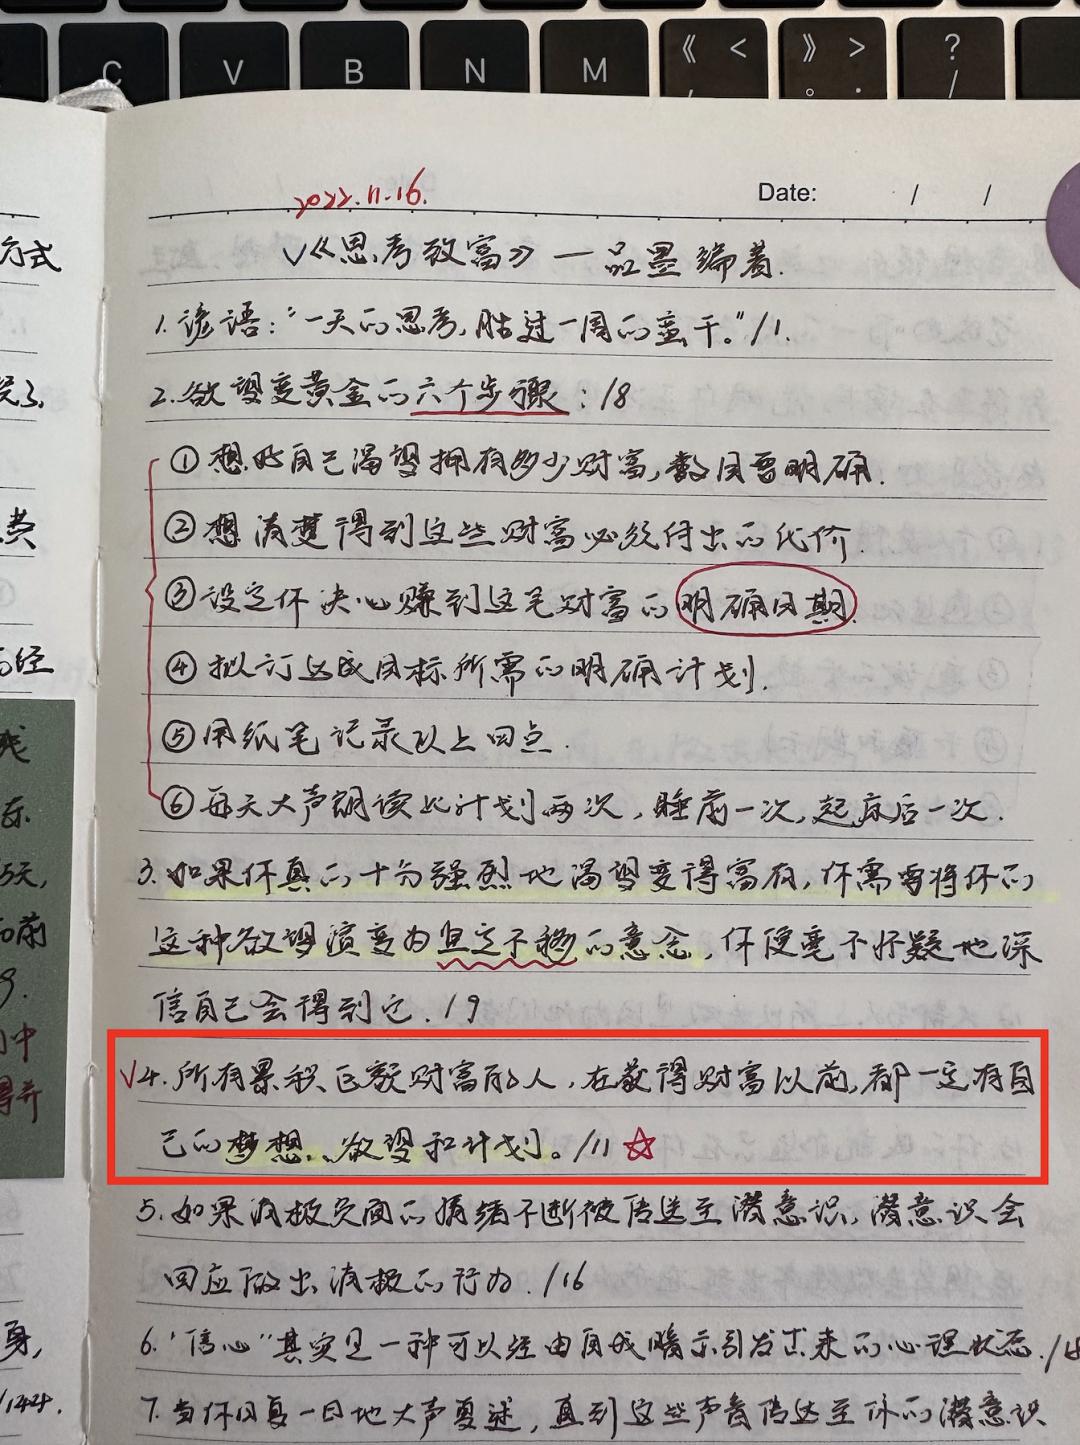 C V B N M 《 < 》 > ?
， 。 . /
2022.11.16.
Date: / /
√《思考致富》— 品墨 编著.
1. 谚语："一天的思考，胜过一周的蛮干。"/1.
2. 欲望变黄金的六个步骤：/8
① 想好自己渴望拥有多少财富，数目要明确.
② 想清楚得到这些财富必须付出的代价.
③ 设定你决心赚到这笔财富的明确日期.
④ 拟订达成目标所需的明确计划.
⑤ 用纸笔记录以上四点.
⑥ 每天大声朗读此计划两次，睡前一次，起床后一次.
3. 如果你真的十分强烈地渴望变得富有，你需要将你的
这种欲望演变为坚定不移的意念，你便毫不怀疑地深
信自己会得到它. /9
√4. 所有累积巨额财富的人，在获得财富以前，都一定有自
己的梦想、欲望和计划。/11 ☆
5. 如果消极负面的情绪不断被传送至潜意识，潜意识会
回应做出消极的行为. /16
6. "信心"其实是一种可以经由自我暗示引发出来的心理状态. /18
7. 当你日复一日地大声复述，直到这些声音传达至你的潜意识
方式
费
经
残
东
5天，
前
9.
中
得并
身，